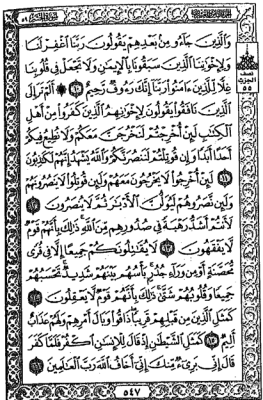 ٥٩
نصف
الحزب
٥٥
وَالَّذِينَ جَاءُو مِنْ بَعْدِهِمْ يَقُولُونَ رَبَّنَا اغْفِرْ لَنَا
وَلِإِخْوَانِنَا الَّذِينَ سَبَقُونَا بِالْإِيمَانِ وَلَا تَجْعَلْ فِي قُلُوبِنَا
غِلًّا لِلَّذِينَ ءَامَنُوا رَبَّنَا إِنَّكَ رَءُوفٌ رَحِيمٌ ١٠ أَلَمْ تَرَ إِلَى
الَّذِينَ نَافَقُوا يَقُولُونَ لِإِخْوَانِهِمُ الَّذِينَ كَفَرُوا مِنْ أَهْلِ
الْكِتَابِ لَئِنْ أُخْرِجْتُمْ لَنَخْرُجَنَّ مَعَكُمْ وَلَا نُطِيعُ فِيكُمْ
أَحَدًا أَبَدًا وَإِنْ قُوتِلْتُمْ لَنَنْصُرَنَّكُمْ وَاللَّهُ يَشْهَدُ إِنَّهُمْ لَكَاذِبُونَ
١١ لَئِنْ أُخْرِجُوا لَا يَخْرُجُونَ مَعَهُمْ وَلَئِنْ قُوتِلُوا لَا يَنْصُرُونَهُمْ
وَلَئِنْ نَصَرُوهُمْ لَيُوَلُّنَّ الْأَدْبَارَ ثُمَّ لَا يُنْصَرُونَ ١٢
لَأَنْتُمْ أَشَدُّ رَهْبَةً فِي صُدُورِهِمْ مِنَ اللَّهِ ذَلِكَ بِأَنَّهُمْ قَوْمٌ
لَا يَفْقَهُونَ ١٣ لَا يُقَاتِلُونَكُمْ جَمِيعًا إِلَّا فِي قُرًى
مُحَصَّنَةٍ أَوْ مِنْ وَرَاءِ جُدُرٍ بَأْسُهُمْ بَيْنَهُمْ شَدِيدٌ تَحْسَبُهُمْ
جَمِيعًا وَقُلُوبُهُمْ شَتَّى ذَلِكَ بِأَنَّهُمْ قَوْمٌ لَا يَعْقِلُونَ ١٤
كَمَثَلِ الَّذِينَ مِنْ قَبْلِهِمْ قَرِيبًا ذَاقُوا وَبَالَ أَمْرِهِمْ وَلَهُمْ عَذَابٌ
أَلِيمٌ ١٥ كَمَثَلِ الشَّيْطَانِ إِذْ قَالَ لِلْإِنْسَانِ اكْفُرْ فَلَمَّا كَفَرَ
قَالَ إِنِّي بَرِيءٌ مِنْكَ إِنِّي أَخَافُ اللَّهَ رَبَّ الْعَالَمِينَ ١٦
٥٤٧